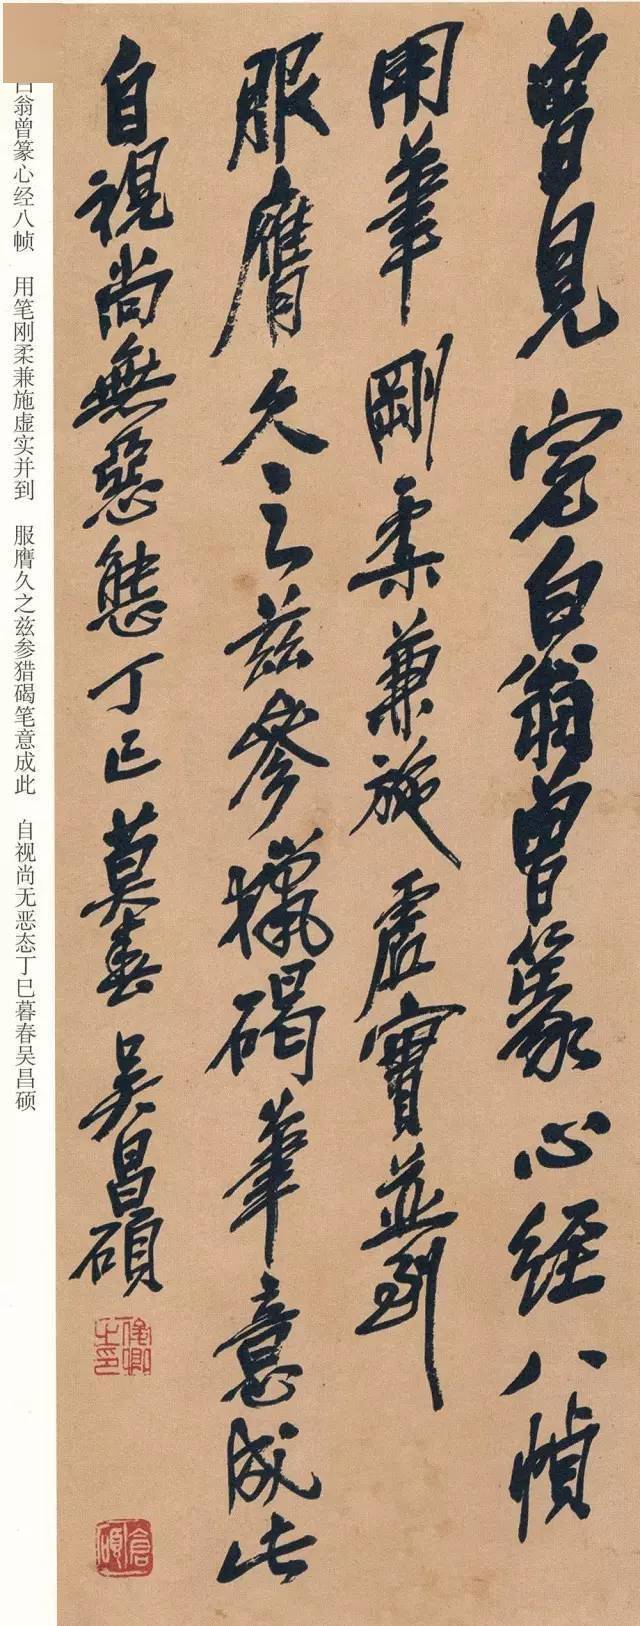 曾見完白翁曾篆心經八幀
用筆剛柔兼施虛實並到
服膺久之兹參獵碣筆意成此
自視尚無惡態丁巳莫春吳昌碩
俊卿之印
倉碩
白翁曾篆心经八帧 用笔刚柔兼施虚实并到 服膺久之兹参猎碣笔意成此 自视尚无恶态丁巳暮春吴昌硕